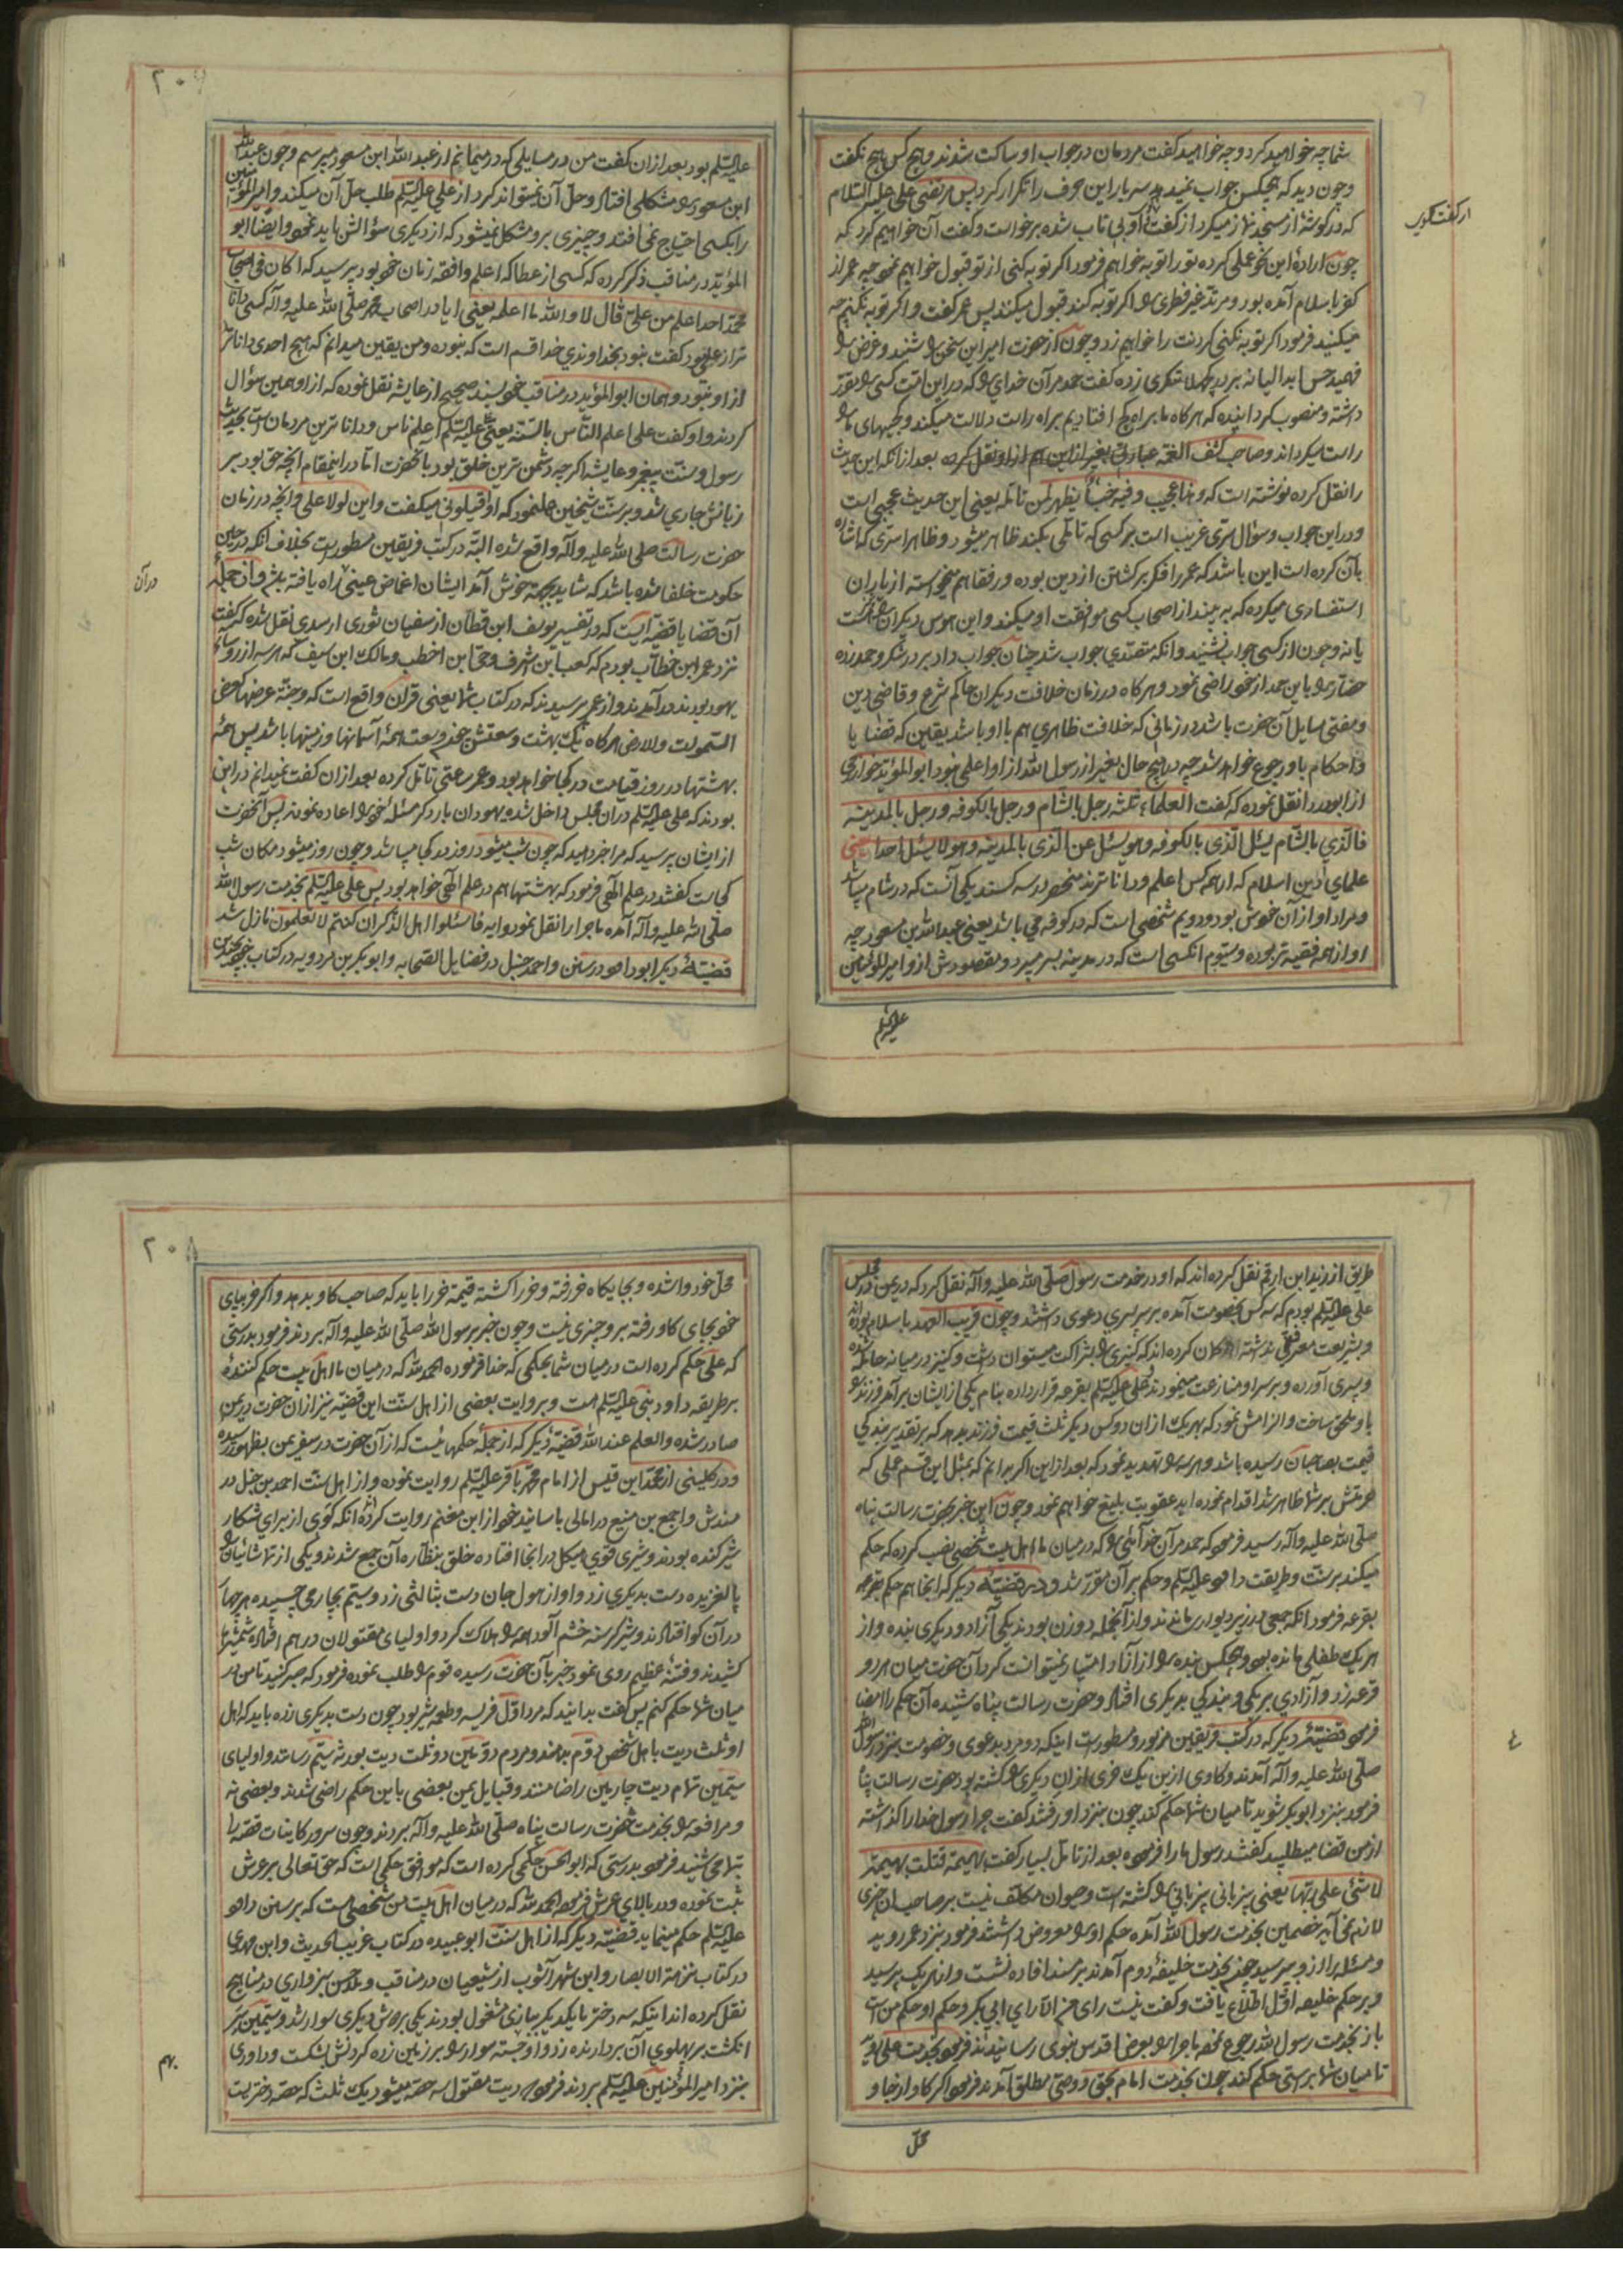 شما چه خواهید کرد و چه خواهید گفت مردمان در جواب او ساکت شدند و هیچ کس هیچ نگفت
و چون دید که هیچکس جواب نمیدهد سه بار این حرف را تکرار کرد پس مرتضی علی علیه السلام
که در گوشهٔ از مسجد نماز میکرد از گفت او بی تاب شده برخاست و گفت آن خواهیم کرد که
چون ارادهٔ این نحو عملی کرده تو را توبه خواهم فرمود اگر توبه کنی از تو قبول خواهیم نمود چه عمر از
کفر باسلام آمده بود و مرتد غیر فطری را اگر توبه کند قبول میکنند پس عمر گفت و اگر توبه نکنم چه
میکنید فرمود اگر توبه نکنی گردنت را خواهیم زد و چون از حضرت امیر این سخن را شنید و غرض را
فهمید گفت حمد مر آن خدای را که در این امت کسی را مقرر
داشته و منصوب گردانیده که هرگاه ما براه کج افتادیم براه راست دلالت میکند و کجیهای ما را
راست میگرداند و صاحب کشف الغمه عبارتی بغیر از این هم از او نقل کرده بعد از آنکه این حدیث
را نقل کرده نوشته است که و هذا عجیب و فیه خبأ یظهر لمن تامله یعنی این حدیث عجیبی است
و در این جواب و سؤال سری غریب است بر کسی که تاملی بکند ظاهر میشود و ظاهرا سری که اشاره
بآن کرده است این باشد که عمر را فکر برگشتن از دین بوده و رفقا هم میخواسته از یاران
استفساری میکرده که به بیند از اصحاب کسی موافقت او میکند و این هوس دیگران را هم هست
یا نه و چون از کسی جواب نشنید و آنکه متصدی جواب شد چنان جواب داد بر در شکر و حمد زده
حضار را باین حد از خود راضی نمود و هرگاه در زمان خلافت دیگران حاکم شرع و قاضی دین
و مفتی مسایل آن حضرت باشد در زمانی که خلافت ظاهری هم با او باشد یقین که قضایا
و احکام باو رجوع خواهد شد چه در هیچ حال بغیر از رسول الله از او اعلمی نبود ابو المؤید خوارزمی
از ابو دردا نقل نموده که گفت العلماء ثلثه رجل بالشام و رجل بالکوفه و رجل بالمدینه
فالذی بالشام یسئل الذی بالکوفه و هو یسئل عن الذی بالمدینه و هو لا یسئل احدا یعنی
علمای دین اسلام که از همه کس اعلم و داناترند منحصر در سه کسند یکی آنست که در شام میباشد
و مراد او از آن خودش بود و دویم شخصی است که در کوفه می باشد یعنی عبد الله بن مسعود چه
او از همه فقیه تر بوده و سیوم آنکسی است که در مدینه بسر میبرد و مقصودش از او امیر المؤمنین
علیه السلم
۲۰۷
علیه السلم بود بعد از آن گفت من در مسایلی که در میمانم از عبد الله ابن مسعود میپرسم و چون عبد الله
ابن مسعود را مشکلی افتد و حل آن نمیتواند کرد از علی علیه السلم طلب حل آن میکند و امیر المؤمنین
را بکسی احتیاج نمی افتد و چیزی برو مشکل نمیشود که از دیگری سؤالش باید نمود و ایضا ابو
المؤید در مناقب ذکر کرده که کسی از عطا که اعلم و افقه زمان خود بود پرسید که اکان فی اصحاب
محمد احد اعلم من علی قال لا و الله ما اعلمه یعنی ایا در اصحاب محمد صلی الله علیه و آله کسی دانا
تر از علی بود گفت نبود بخداوندی خدا قسم است که نبوده و من یقین میدانم که هیچ احدی داناتر
از او نبود و همان ابو المؤید در مناقب خود بسند صحیح از عایشه نقل نموده که از او همین سؤال
کردند و او گفت علی اعلم الناس بالسنه یعنی علی علیه السلم اعلم ناس و داناترین مردمان است بحدیث
رسول و سنت پیغمبر و عایشه اگر چه دشمن ترین خلق بود با آنحضرت اما در اینمقام آنچه حق بود بر
زبانش جاری شد و بر سنت شیخین عمل نمود که او اقیلونی میگفت و این لولا علی و آنچه در زمان
حضرت رسالت صلی الله علیه و آله واقع شده البته در کتب فریقین مسطور است بخلاف آنکه در حین
حکومت خلفا شده باشد که شاید بجهة خوش آمد ایشان اغماض عینی راه یافته باشد و از جمله
آن قضایا قضیه ایست که در تفسیر یوسف ابن قطان از سفیان ثوری از سدی نقل شده که گفت
نزد عمر ابن خطاب بودم که کعب ابن شرف و حی ابن اخطب و مالک ابن سیف که هر سه از رؤسای
یهود بودند در آمدند و از عمر پرسیدند که در کتاب شما یعنی قران واقع است که و جنة عرضها کعرض
السموات و الارض هرگاه یک بهشت وسعتش چند وسعت همهٔ آسمانها و زمینها باشد پس همهٔ
بهشتها در روز قیامت در کجا خواهد بود و عمر ساعتی تامل کرده بعد از آن گفت نمیدانم در این
بودند که علی علیه السلم در آن مجلس داخل شده یهودان بار دگر مسئله خود را اعاده نمودند پس آنحضرت
از ایشان پرسید که مرا خبر دهید که چون شب میشود روز در کجا میباشد و چون روز میشود مکان شب
کجاست گفتند در علم الهی فرمود که بهشتها هم در علم الهی خواهد بود پس علی علیه السلم بخدمت رسول الله
صلی الله علیه و آله آمده ماجرا را نقل نمود و ایه فاسئلوا اهل الذکر ان کنتم لا تعلمون نازل شد
قضیهٔ دیگر ابو داود در سنن و احمد حنبل در فضایل الصحابه و ابو بکر بن مردویه در کتاب خود بچندین
در آن
طریق از زید ابن ارقم نقل کرده اند که او در خدمت رسول صلی الله علیه و آله نقل کرد که در یمن در مجلس
علی علیه السلم بودم که سه کس بخصومت آمده بر سر پسری دعوی داشتند و چون قریب العهد باسلام بوده اند
و بشریعت معرفتی نداشته اند گمان کرده اند که کنیزی را بشراکت میتوان داشت و کنیز در میانه حامله شده
و پسری آورده و بر سر او منازعت مینمودند علی علیه السلم بقرعه قرار داده بنام یکی از ایشان برآمد فرزند را
باو ملحق ساخت و الزامش نمود که بهر یک از آن دو کس دیگر ثلث قیمت فرزند بدهد که بر تقدیر بندگی
قیمت بصاحبان رسیده باشد و هر سه را تهدید نمود که بعد از این اگر بدانم که بمثل این قسم عملی که
حرمتش بر شما ظاهر شد اقدام نموده اید عقوبت بلیغ خواهم نمود و چون این خبر بحضرت رسالت پناه
صلی الله علیه و آله رسید فرمود که حمد مر آن خدائی را که در میان ما اهل بیت شخصی نصب کرده که حکم
میکند بر سنت و طریقت داود علیه السلم و حکم بر آن مقرر شد و در قضیهٔ دیگر که آنجا هم حکم بقرعه
بقرعه فرمود آنکه جمعی در زیر دیوار ماندند و از آنجمله دو زن بودند یکی آزاد و دیگری بنده و از
هر یک طفلی مانده بود و هیچکس بنده را از آزاد امتیاز نمیتوانست کرد آن حضرت میان هر دو
قرعه زد و آزادی بر یکی و بندگی بدیگری افتاد و حضرت رسالت پناه شنیده آن حکم را امضا
فرمود قضیهٔ دیگر که در کتب فریقین مزبور و مسطور است اینکه دو مرد بدعوی و خصومت بنزد رسول الله
صلی الله علیه و آله آمدند و گاوی از یک خری از آن دیگری را کشته بود حضرت رسالت پناه
فرمود بنزد ابو بکر شوید تا میان شما حکم کند چون بنزد او رفتند گفت چرا رسول خدا را گذاشته
از من قضا میطلبید گفتند رسول ما را فرموده بعد از تامل بسیار گفت بهیمة قتلت بهیمة
لا شئ علی ربها یعنی بیزبانی بیزبانی را کشته است و حیوان مکلف نیست بر صاحب آن چیزی
لازم نمی آید خصمین بخدمت رسول الله آمده حکم او را معروض داشتند فرمود بنزد عمر روید
و مسئله را از و بپرسید چون بخدمت خلیفهٔ دوم آمدند بر مسند افاده نشست و از هر یک پرسید
و بر حکم خلیفه اول اطلاع یافت و گفت نیست رای من الا رای ابی بکر و حکم او حکم من است
باز بخدمت رسول الله رجوع نموده ماجرا را بعرض اقدس نبوی رسانیدند فرمود بخدمت علی روید
تا میان شما براستی حکم کند چون بخدمت امام بحق و وصی مطلق آمدند فرمود اگر گاو از جا و
محل
۲۰۸
محل خود وا شده و بجایگاه خر رفته و خر را کشته قیمة خر را باید که صاحب گاو بدهد و اگر خر بپای
خود بجای گاو رفته برو چیزی نیست و چون خبر برسول الله صلی الله علیه و آله بردند فرمود بدرستی
که علی حکم کرده است در میان شما بحکمی که خدا فرموده الحمد لله که در میان ما اهل بیت حکم کنندهٔ
بر طریقه داود نبی علیه السلم هست و بروایت بعضی از اهل سنت این قضیه نیز از آن حضرت در یمن
صادر شده و العلم عند الله قضیهٔ دیگر که از جملهٔ حکمهائیست که از آن حضرت در سفر یمن بظهور رسیده
و در کلینی از محمد ابن قیس از امام محمد باقر علیه السلم روایت نموده و از اهل سنت احمد بن حنبل در
مسندش و احمد بن منیع در امالی باسانید خود از ابن معتمر روایت کرده اند آنکه گوی از برای شکار
شیر کنده بودند و شیری قوی هیکل در آنجا افتاده خلق بنظاره آن جمع شدند و یکی از تماشائیان را
پا لغزیده دست بدیگری زد و او از هول جان دست بثالثی زد و سیّم بچارمی چسپیده هر چهار
در آن گو افتادند و شیر گرسنه خشم آلود همه را هلاک کرد و اولیای مقتولان در هم افتاده شمشیرها
کشیدند و فتنهٔ عظیم روی نمود خبر بآن حضرت رسیده قوم را طلب نموده فرمود که صبر کنید تا من در
میان شما حکم کنم پس گفت بدانید که مرد اول فریسه و طعمه شیر بود چون دست بدیگری زده باید که اهل
او ثلث دیت باهل شخص دوم بدهند و مردم دومین دو ثلث دیت بورثه سیّم رسانند و اولیای
سیمین تمام دیت چارمین را ضامنند و قبایل یمن بعضی باین حکم راضی شدند و بعضی نه
و مرافعه را بخدمت حضرت رسالت پناه صلی الله علیه و آله بردند و چون سرور کاینات قصه را
بتمامی شنید فرمود بدرستی که ابو الحسن حکمی کرده است که موافق حکمی است که حق تعالی بر عرش
ثبت نموده و در بالای عرش فرموده الحمد لله که در میان اهل بیت من شخصی هست که بر سنن داود
علیه السلم حکم مینماید قضیه دیگر که از اهل سنت ابو عبیده در کتاب غریب الحدیث و ابن مهدی
در کتاب نزهة الابصار و ابن شهر آشوب از شیعیان در مناقب و ملا حسن سبزواری در مباهج
نقل کرده اند اینکه سه دختر با یکدیگر ببازی مشغول بودند یکی بدوش دیگری سوار شد و سیمین سر
انگشت بر پهلوی آن بردارنده زد و او جسته سوار را بر زمین زده گردنش بشکست و داوری
بنزد امیر المؤمنین علیه السلم بردند فرموده دیت مقتول سه حصه میشود یک ثلث که حصه دختریست
بهم